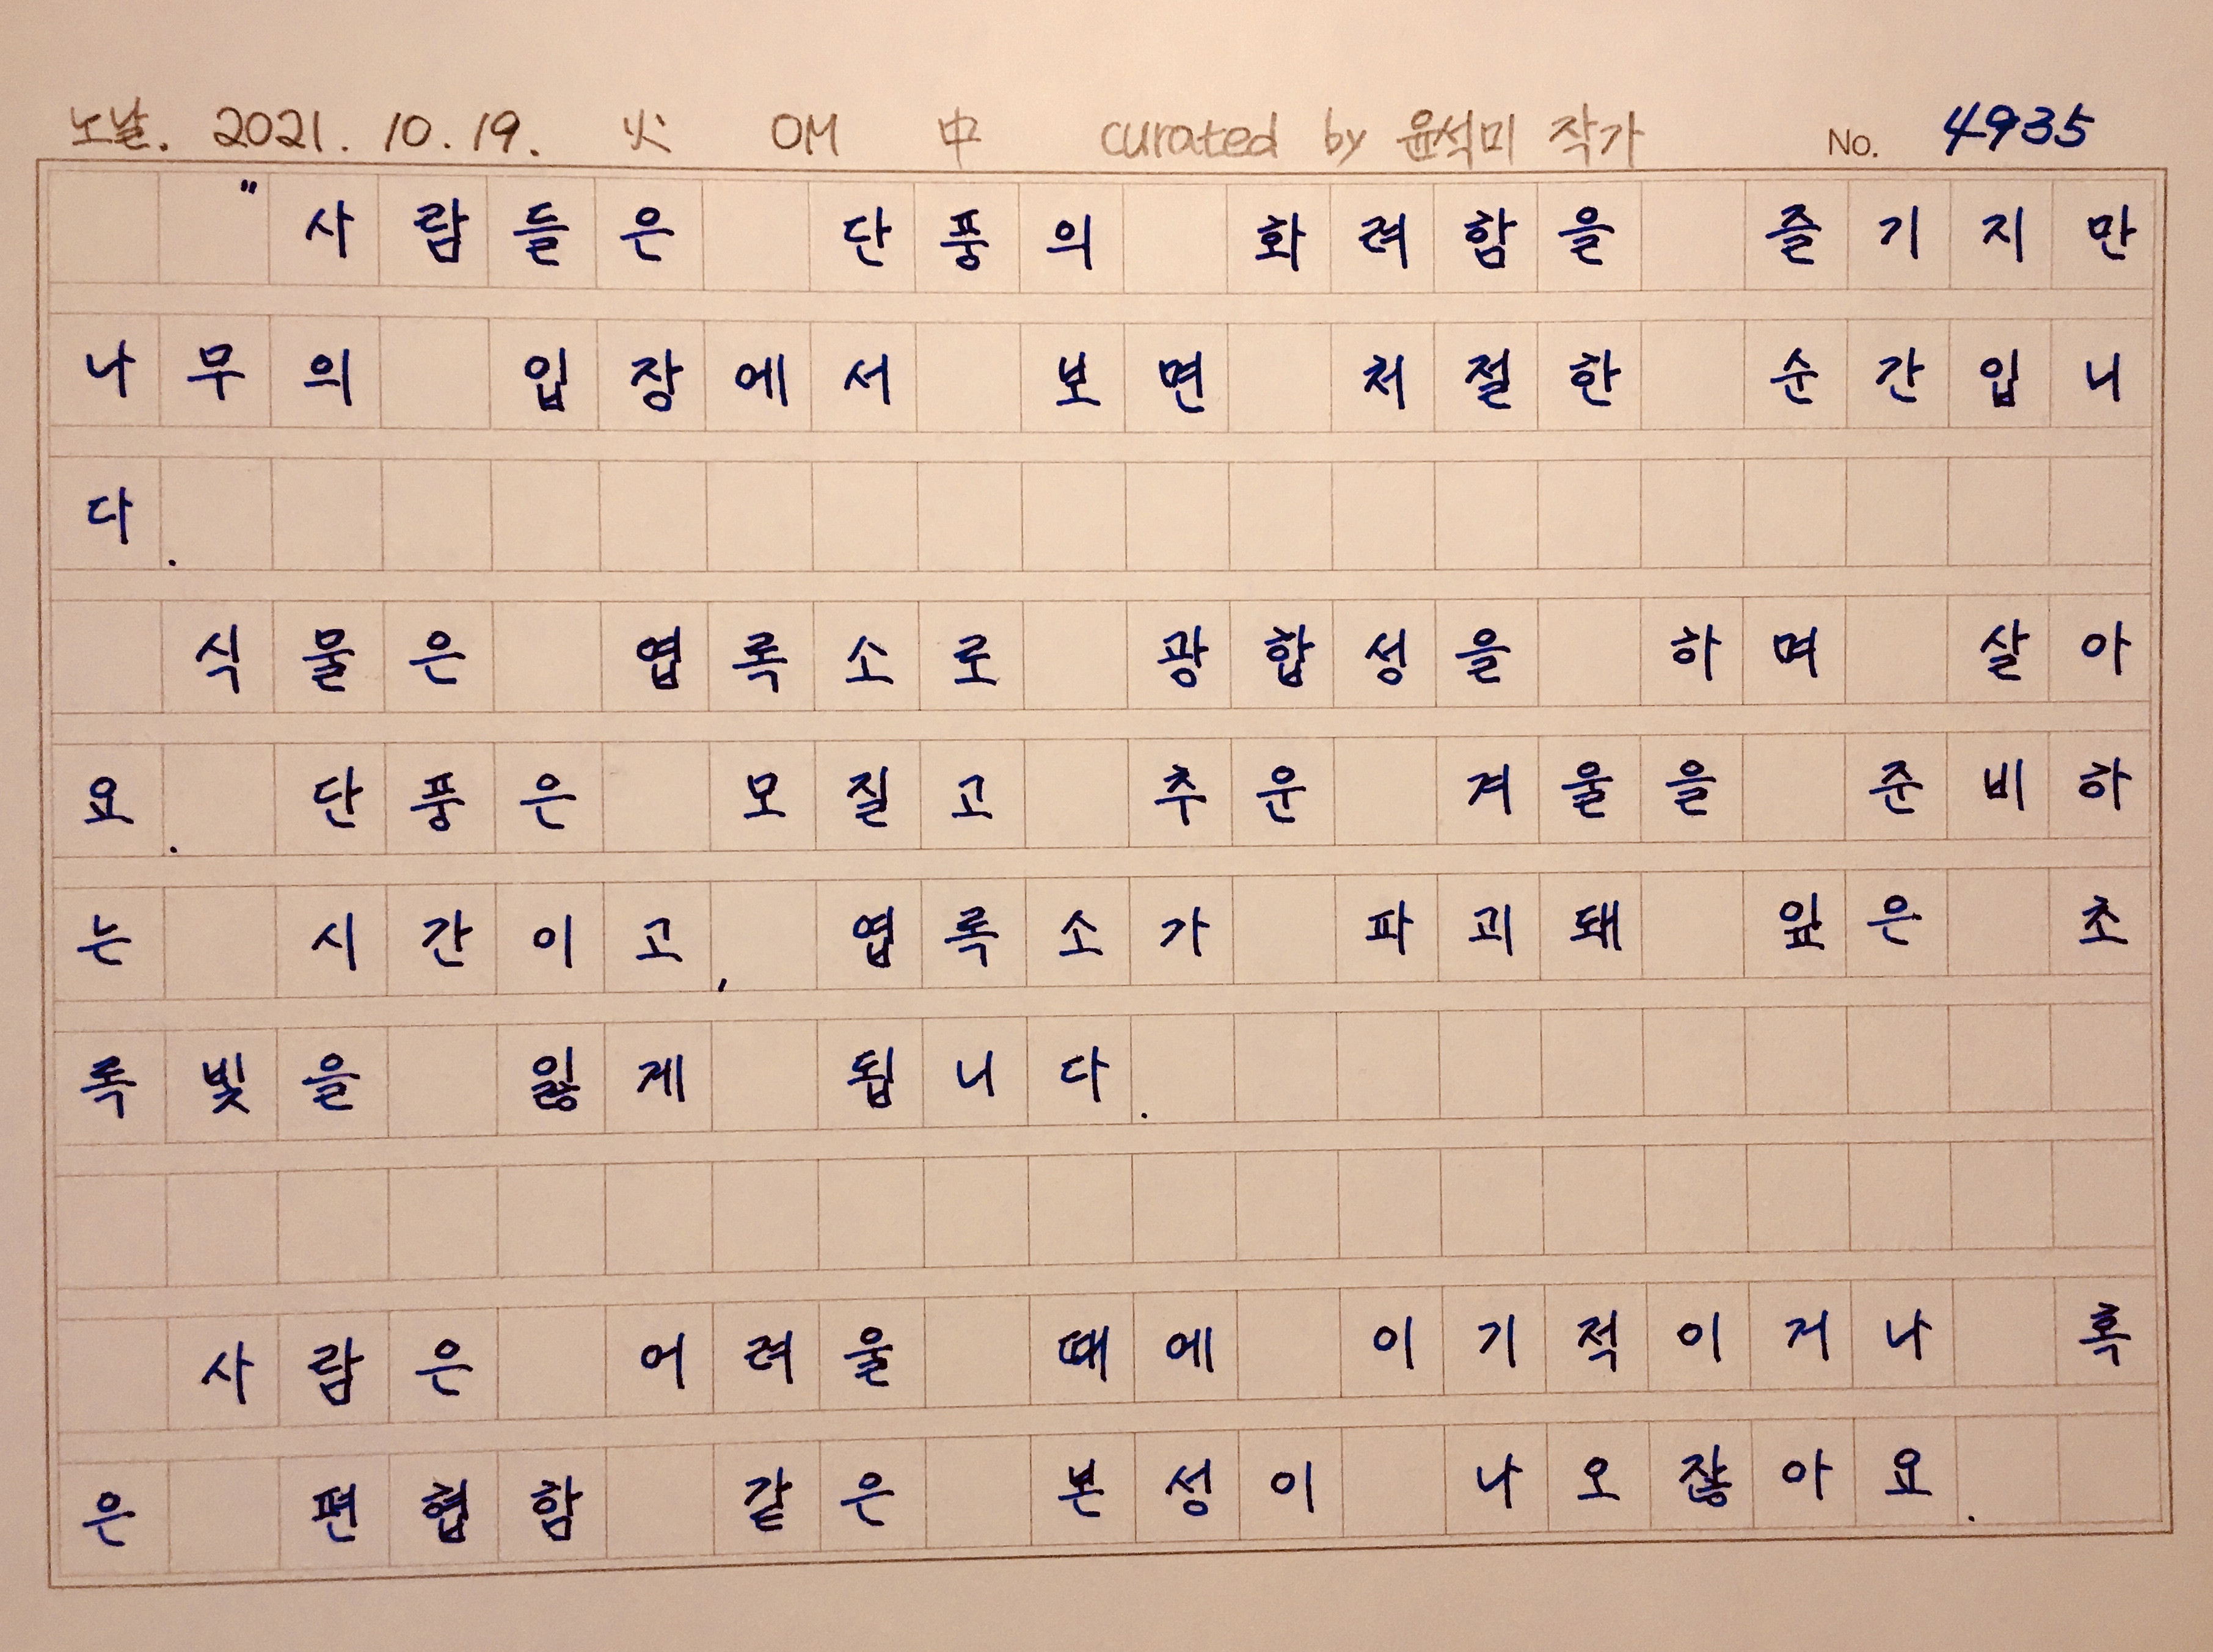 노날. 2021. 10. 19. 火 OM 中 curated by 윤석미 작가 No. 4935
"사람들은 단풍의 화려함을 즐기지만
나무의 입장에서 보면 처절한 순간입니
다.
식물은 엽록소로 광합성을 하며 살아
요. 단풍은 모질고 추운 겨울을 준비하
는 시간이고, 엽록소가 파괴돼 잎은 초
록빛을 잃게 됩니다.
사람은 어려울 때에 이기적이거나 혹
은 편협함 같은 본성이 나오잖아요.